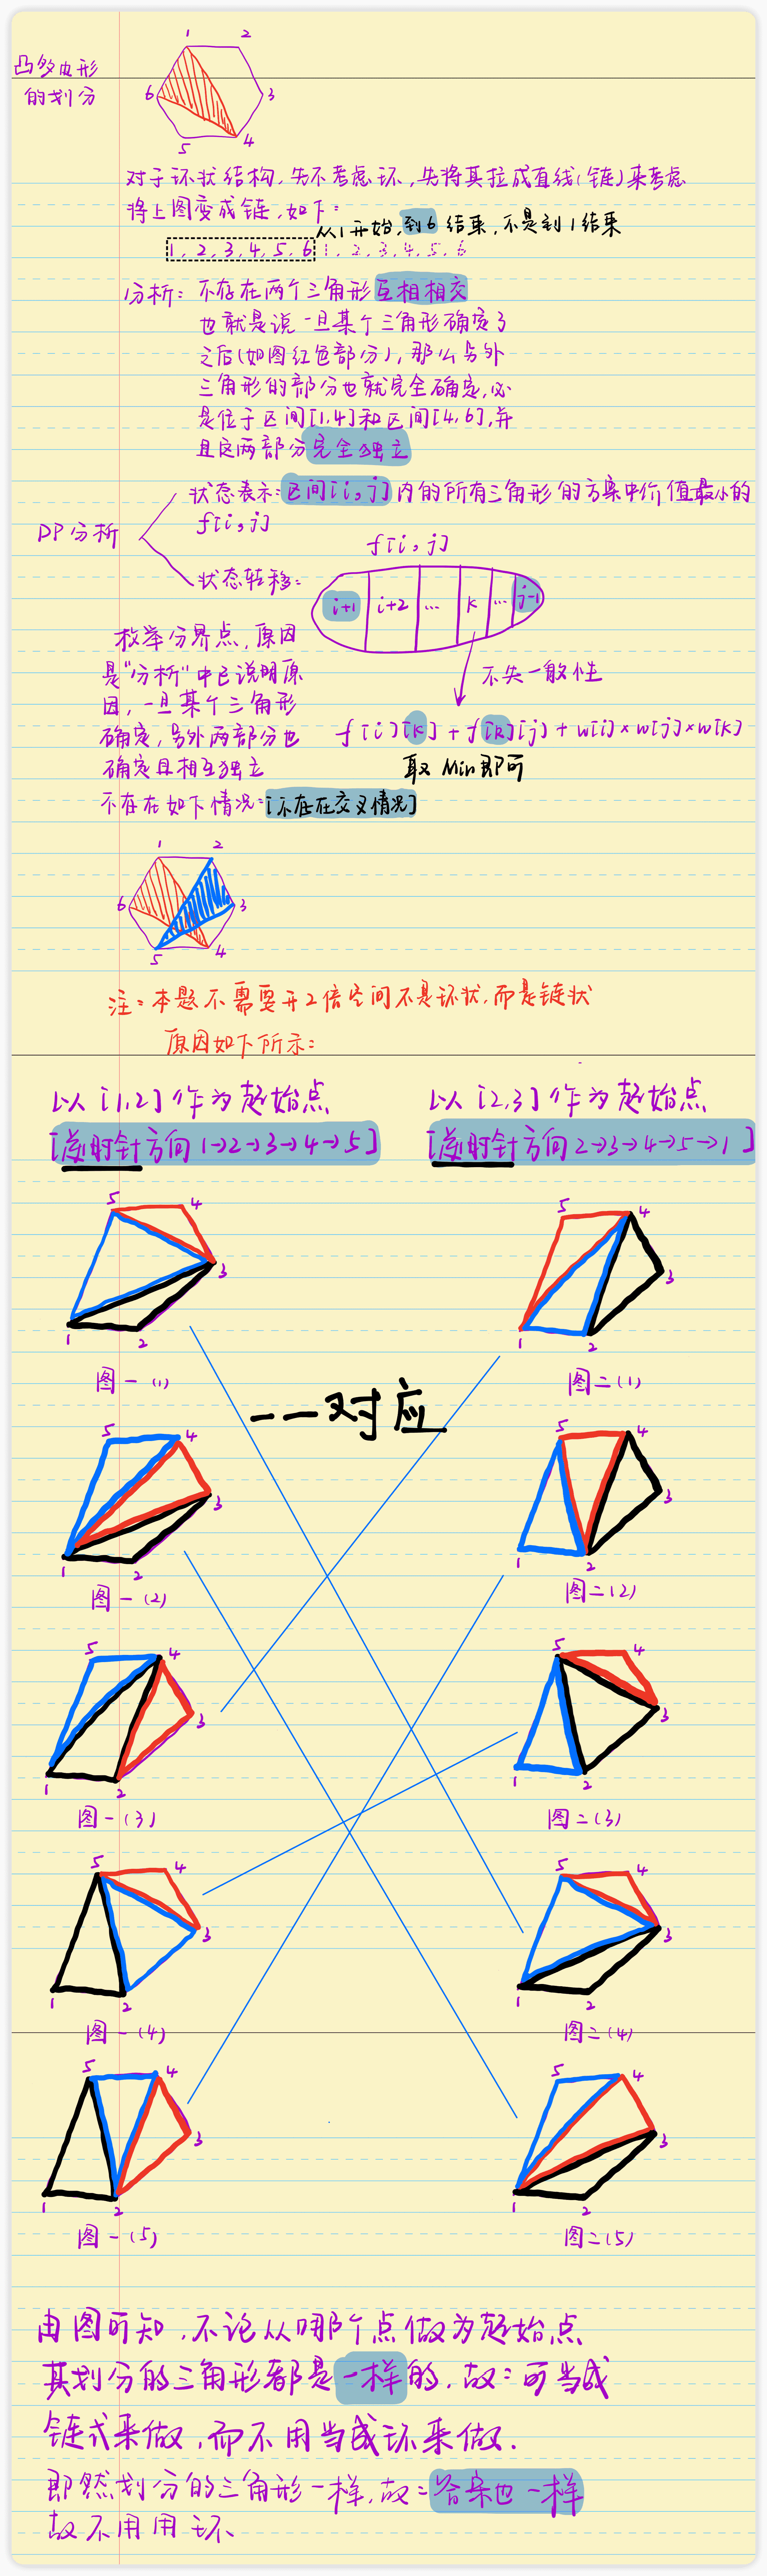 凸多边形
的划分
1 2
6 3
5 4
对于环状结构,先不考虑环,先将其拉成直线(链)来考虑
将上图变成链,如下:
从1开始,到6结束,不是到1结束
1,2,3,4,5,6 1,2,3,4,5,6
分析: 不存在两个三角形互相相交
也就是说一旦某个三角形确定了
之后(如图红色部分),那么另外
三角形的部分也就完全确定,必
是位于区间[1,4]和区间[4,6],并
且这两部分完全独立
状态表示:区间[i,j]内的所有三角形的方案中价值最小的
f[i,j]
DP分析
f[i,j]
状态转移:
i+1 i+2 ... k ... j-1
枚举分界点,原因
是“分析”中已说明原
因,一旦某个三角形
确定,另外两部分也
确定且相互独立
不失一般性
f[i][k] + f[k][j] + w[i]×w[j]×w[k]
取Min即可
不存在如下情况:[不存在交叉情况]
1 2
6 3
5 4
注:本题不需要开2倍空间不是环状,而是链状
原因如下所示:
以[1,2]作为起始点
[逆时针方向1→2→3→4→5]
以[2,3]作为起始点
[逆时针方向2→3→4→5→1]
5 4
3
1 2
图一(1)
5 4
3
1 2
图二(1)
一一对应
5 4
3
1 2
图一(2)
5 4
3
1 2
图二(2)
5 4
3
1 2
图一(3)
5 4
3
1 2
图二(3)
5 4
3
1 2
图一(4)
5 4
3
1 2
图二(4)
5 4
3
1 2
图一(5)
5 4
3
1 2
图二(5)
由图可知,不论从哪个点做为起始点
其划分的三角形都是一样的,故:可当成
链式来做,而不用当成环来做.
即然划分的三角形一样,故:答案也一样
故不用用环、